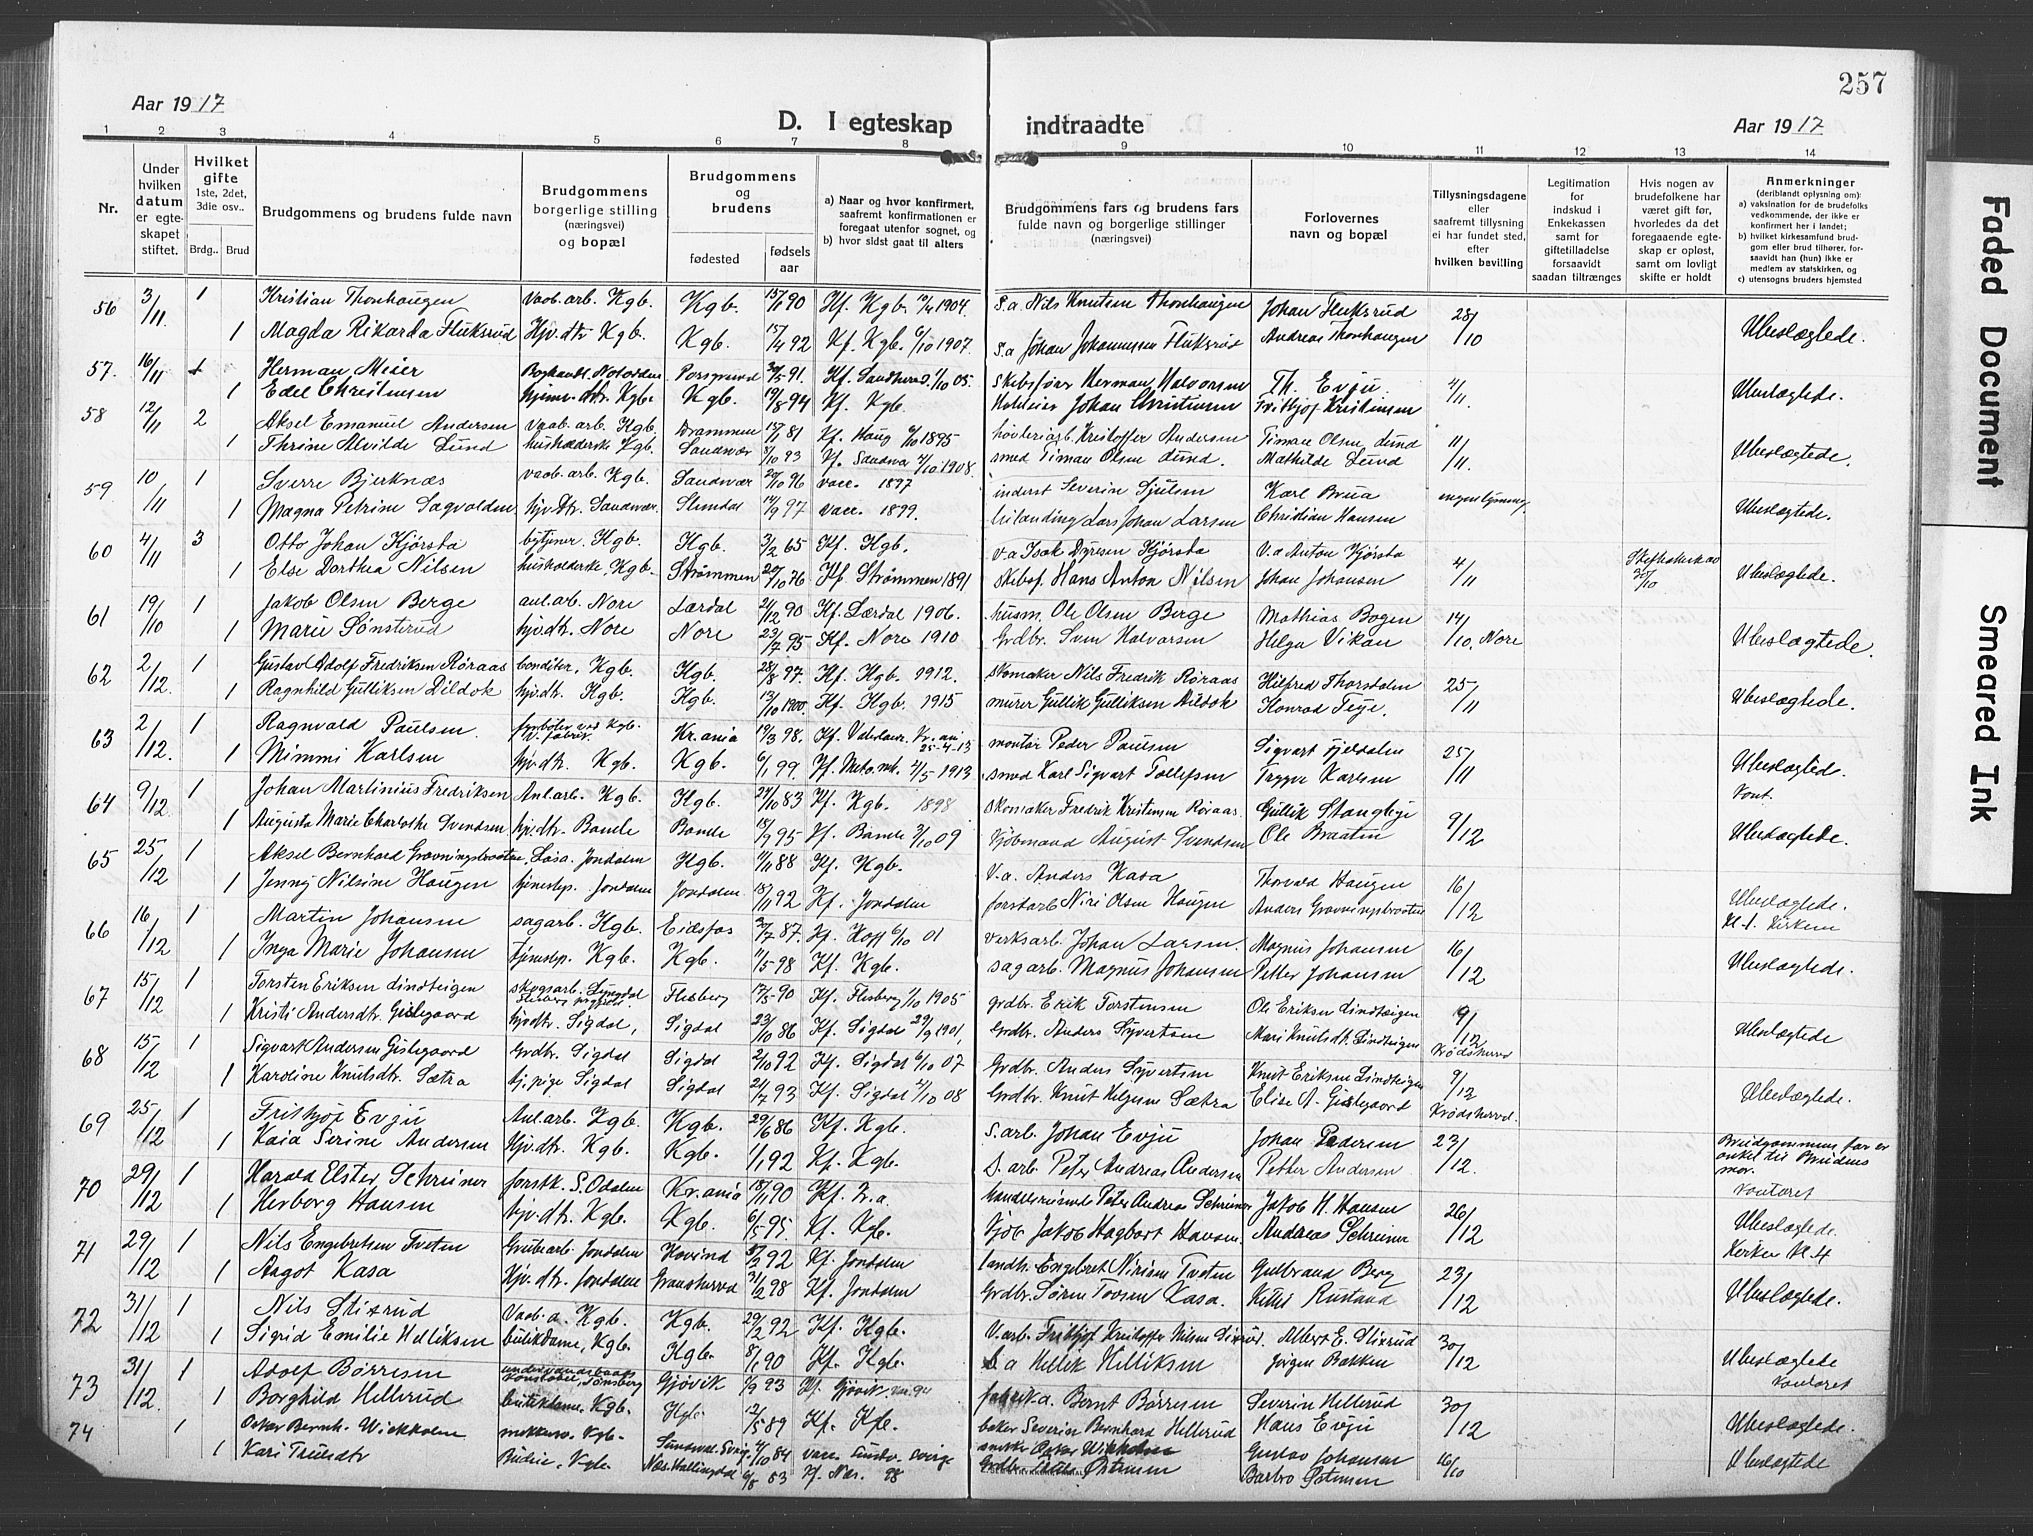 257
Aar 1917
D. I egteskap indtraadte
Aar 1917
1 2 3 4 5 6 7 8 9 10 11 12 13 14
Nr.
Under hvilken datum er egteskapet stiftet.
Hvilket gifte 1ste, 2det, 3die osv..
Brdg.. Brud
Brudgommens og brudens fulde navn
Brudgommens borgerlige stilling (næringsvei) og bopæl
Brudgommens og brudens
fødested
fødsels aar
a) Naar og hvor konfirmert, saafremt konfirmationen er foregaat utenfor sognet, og
b) hvor sidst gaat til alters
Brudgommens fars og brudens fars fulde navn og borgerlige stillinger (næringsvei)
Forlovernes navn og bopæl
Tillysningsdagene eller saafremt tillysning ei har fundet sted, efter hvilken bevilling
Legitimation for indskud i Enkekassen samt for giftetilladelse forsaavidt saadan tiltrænges
Hvis nogen av brudefolkene har været gift før, hvorledes da det foregaaende egteskap er opløst, samt om lovligt skifte er holdt
Anmerkninger (deriblandt oplysning om):
a) vaksination for de brudefolks vedkommende, der ikke er konfirmert her i landet;
b) hvilket kirkesamfund brudgom eller brud tilhører, forsaavidt han (hun) ikke er medlem av statskirken, og
c) utensogns bruders hjemsted
56 3/11 1 Kristian Thonhaugen Vaab.arb. Kgb. Kgb. 90 Kf. Kgb. 1904. S.a Nils Knutsen Thonhaugen Johan Fluksrud 28/10 Ubeslægtede.
1 Magda Rikarda Fluksrud Hjv.dtr Kgb. Kgb. 15/4 92 Kf. Kgb. 6/10 1907. S.a Johan Johannessen Andreas Thonhaugen
57. 16/11 1 Herman Meier Porsgrund 91. Kf. 05. Skibsfører Herman Halvorsen Th. Evju. 4/11. Ubeslægtede.
1 Edel Christensen Kgb. Kgb. 19/8 94 Kf. Kgb. Johan Christensen Frithjof Kristensen
58 12/11 2 Aksel Emanuel Andersen Vaab.arb. Kgb. Drammen 81 Kf. Haug 1895 Kristoffer Andersen Timan Olsen Lund 11/11. Ubeslægtede.
1 Thrine Alvilde Lund Kgb. Sandsvær 8/10 93 Kf. 1908. smed Timan Olsen Lund. Mathilde Lund
59 10/11 1 Sverre Bjerknæs vaab.arb. Kgb. Sandsvær 20/10 96 vacc. 1897 inderst Severin Karl Brua Ubeslægtede.
1 Magna Petrine Sagvolden hjv.dtr. Sandsvær. Slemdal 14/9 97 vacc. 1899. Lars Johan Larsen Christian Hansen
60 4/11 3 Otto Johan Hjørsta bytjener. Kgb. Kgb. 3/2 65 Kf. Kgb. V.a Isak Hjørsta V.a Anton Hjørsta 4/11 Ubeslægtede.
1 Else Dorthea Nilsen Kgb. Strømmen 20/10 76 Kf. Strømmen 1891 Skibsf. Hans Anton Nilsen Johan Johansen
61 19/10 1 Jakob Olsen Berge anl.arb. Nore Lærdal 21/12 90 Kf. Lærdal 1906. husm. Ole Olsen Berge Mathias Bogen 14/10. Nore Ubeslægtede.
1 Marie Sønsterud hjv.dtr. Nore Nore 23/7 95 Kf. Nore 1910 Grdbr. Sven Halvorsen Helga Vikan
62 2/12. 1 Gustav Adolf Fredriksen Røraas Kgb. Kgb. 28/8 97. Kf. Kgb. 1912. skomaker Nils Fredrik Røraas Hilfred Thorsdalen 25/11 Ubeslægtede.
1 Ragnhild Gulliksen Dildok hjv.dtr. Kgb. Kgb. 13/10 1900. Kf. Kgb. 1915 murer Gullik Gulliksen Dildok Konrad Teije.
63 2/12. 1 Ragnvald Paulsen. Kr.ania 19/3 98. Kf. Vaterland. Kr.ani 25-4-13 montør Peder Paulsen Sigvart Fjeldalen 25/11 Ubeslægtede. Vont.
1 Mimmi Karlsen hjv.dtr. Kgb. Kgb. 6/1 99. Kf. 1913 smed Karl Sigvart Tollefsen Trygve Karlsen
64 9/12. 1 Johan Martinius Fredriksen Anl.arb. Kgb. Kgb. 24/10 83 Kf. Kgb. 1898 skomaker Fredrik Kristensen Røraas. Gullik Stangeije 9/12 Ubeslægtede.
1 Augusta Marie Charlothe Svendsen hjv.dtr. Bamle Bamle 15/9 95 Kf. Bamle 09 Kjøbmand August Svendsen Ole Braaten
65 25/12 1 Aksel Bernhard Gravningsbraaten, Jondalen Kgb. 88 Kf. Kgb. V.a. Anders Kasa Thorvald Haugen 16/12 Ubeslægtede. M.t. Kirken
1 Jenny Nilsine Haugen Jondalen Jondalen 18/11 92 Kf. Jondalen forstarb Niri Olsen Haugen Anders Gravningsbraaten
66 16/12 1 Martin Johansen sagarb. Kgb. Eidsfos 87. Kf. Hoff 6/10 01 Verksarb. Johan Larsen. Magnus Johansen 16/12 Ubeslægtede.
1 Inga Marie Johansen tjenestep. Kgb. Kgb. 98 Kf. Kgb. sagarb. Magnus Johansen Petter Johansen
67 15/12 1 Torsten Eriksen Lindteigen skogsarb. Flesberg 17/5 90 Kf. Flesberg 1905 grdbr. Erik Torstensen Ole Eriksen Lindteigen 9/12 Krødsherred Ubeslægtede
1 Kristi Andersdtr. Gislegaard hjvdtr. Sigdal, Sigdal 23/10 86 Kf. Sigdal 29/9 1901, Grdbr. Anders Syvertsen Mari Knutsdt. Lindteigen
68 15/12 1 Sigvart Andersen Gislegaard Grdbr. Sigdal Sigdal 92 Kf. Sigdal 6/10 07 Grdbr. Anders Syvertsen Knut Eriksen Lindteigen 9/12 Krødsherred. Ubeslægtede.
1 Karoline Knutsdtr. Sætra tj.pige Sigdal Sigdal 21/7 93 Kf. Sigdal 08 Grdbr. Knut Helgesen Sætra Elise A. Gislegaard
69 25/12 1 Frithjof Evju Anl.arb. Kgb. Kgb. 29/6 86 Kf. Kgb. S.arb. Johan Evju Johan Pedersen 23/12. Brudgommens far er onkel til Brudens mor. Vont.
1 Kaia Serine Andersen Hjv.dtr. Kgb. Kgb. 1/1 92 Kf. Kgb. S. arb. Peter Andreas Andersen Petter Andersen
70 29/12 1 Harald Elster Schreiner forstk. S. Odalen Kr.ania 18/11 90 Kf. Kr.a. Peter Andreas Schreiner Jakob H. Hansen 26/12 Ubeslægtede. Kirken N.4
1 Herborg Hansen hjv.dtr. Kgb. Kgb. 6/5 95. Kf. Kgb. Kjøb Jakob Hagbart Hansen. Andreas Schreiner
71 29/12 1 Nils Engebretsen Tveten Grubearb. Jondalen Hovind 92 Kf. Jondalen landh. Engebret Nirisen Tveten Gulbrand Berg 23/12 Ubeslægtede.
1 Aagot Kasa Hjv.dtr. Jondalen Gransherred 31/12 98 Kf. Jondalen Grdbr. Søren Tovsen Kasa. Kittil Rustand
72 31/12 1 Nils Stixrud Vaab.a. Kgb. Kgb. 29/2 92 Kf. Kgb. V.arb. Fritjof Kristoffer Nilsen Stixrud. Albert E. Stixrud 30/12 Ubeslægtede
1 Sigrid Emilie Helliksen butikdame, Kgb. Kgb. 8/1 90 Kf. Kgb. a Hellik Helliksen Jørgen Bakken
73 31/12. 1 Adolf Børresen Tønsberg Gjøvik 93 Kf. Gjøvik. fabrik.a. Bernt Børresen Severin Hellerud 30/12 Ubeslægtede.
1 Borghild Hellerud butikdame. Kgb. Kgb. 12/5 89 Kf. Kgb. baker Severin Bernhard Hellerud Hans Evju
74 1 Oskar Bernh. Wickholm Kgb. 84 vacc. Gustav Johansen 16/10 Ubeslægtede
1 Kari Trulsdtr Budeie, Kgb. Næs. Hallingdal 6/8 83 Kf. Næs. 98 Grdbr. Østensen Barbro Østensen
Faded Document
Smeared Ink